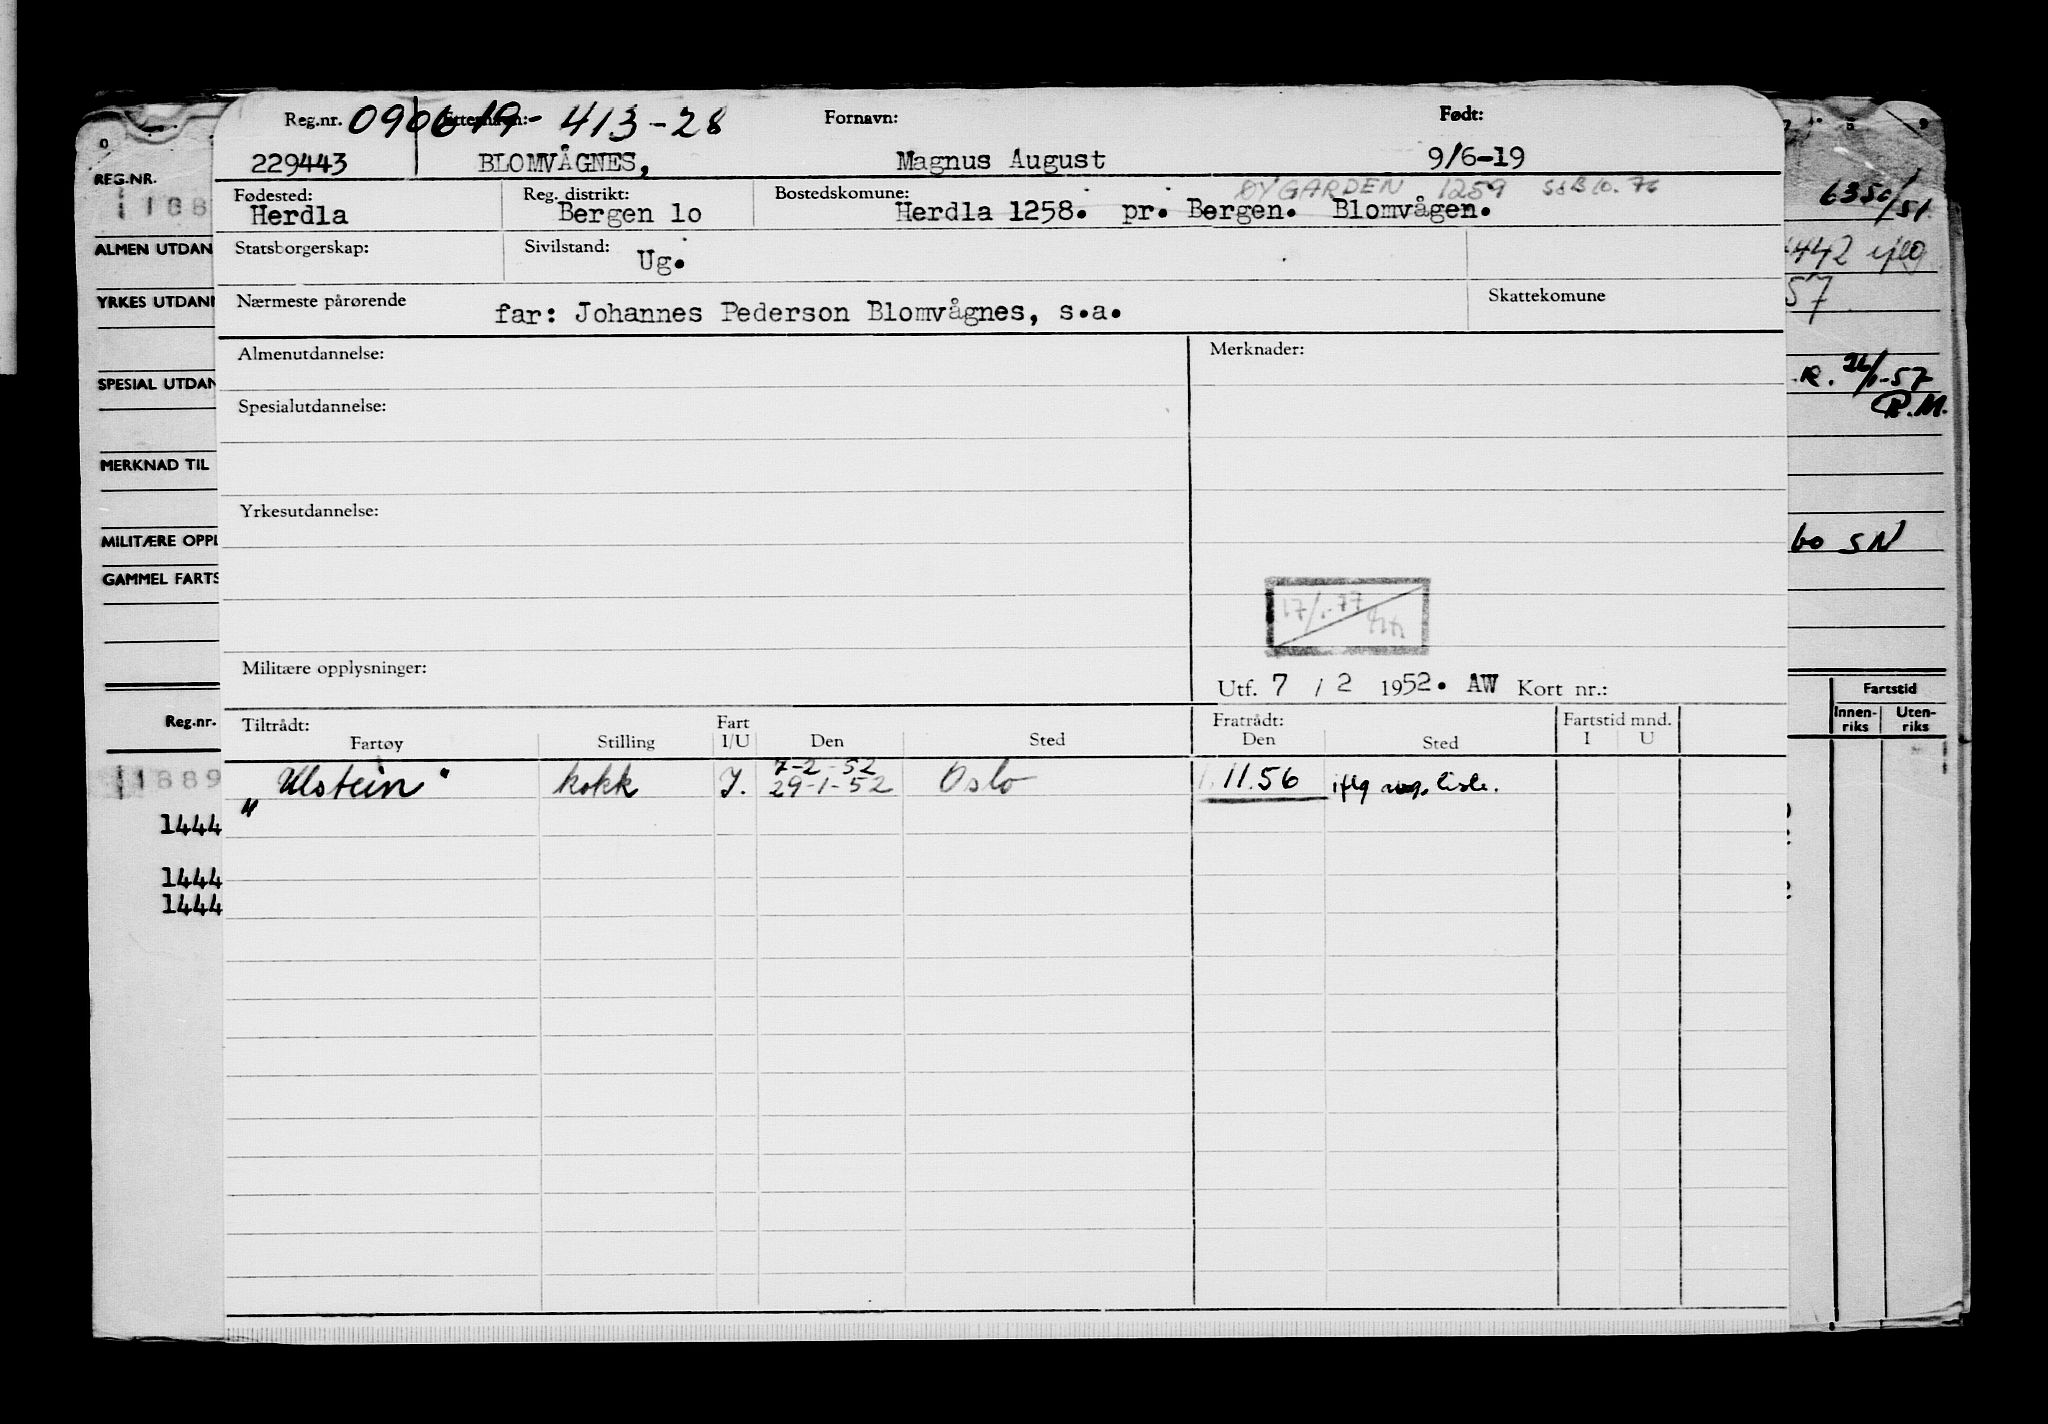 Reg.nr. Etternavn: Fornavn: Født:
090619-413-28
229443 BLOMVÅGNES, Magnus August 9/6-19
Fødested: Reg. distrikt: Bostedskomune: ØYGARDEN 1259
Herdla Bergen 1o Herdla 1258. pr. Bergen. Blomvågen.
Statsborgerskap: Sivilstand: Ug.
Nærmeste pårørende far: Johannes Pederson Blomvågnes, s.a. Skattekomune
Almenutdannelse: Merknader:
Spesialutdannelse:
Yrkesutdannelse:
17/1-77
Militære opplysninger:
Utf. 7 / 2 1952. AW Kort nr.:
Tiltrådt: Fart Fratrådt: Fartstid mnd.
Fartøy Stilling I/U Den Sted Den Sted I U
7-2-52
„Ulstein" kokk I. 29-1-52 Oslo 11.56 iflg liste.
REG.NR.
ALMEN UTDAN
YRKES UTDANN
SPESIAL UTDAN
MERKNAD TIL
MILITÆRE OPPL
GAMMEL FARTS
Reg.nr.
11889
1444
1444
1444
442 iflg
57
R. 26/1-57
R.M.
60 SN
Fartstid
Innen-riks Uten-riks